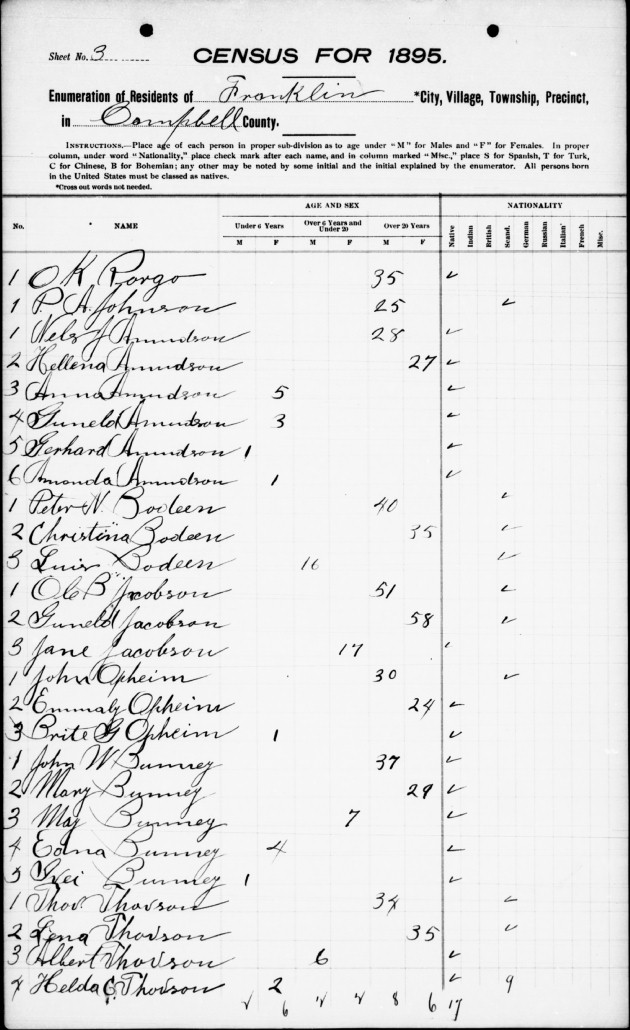 Sheet No. 3
CENSUS FOR 1895.
Enumeration of Residents of Franklin *City, Village, Township, Precinct,
in Campbell County.
INSTRUCTIONS.—Place age of each person in proper sub-division as to age under "M" for Males and "F" for Females. In proper
column, under word "Nationality," place check mark after each name, and in column marked "Misc.," place S for Spanish, T for Turk,
C for Chinese, B for Bohemian; any other may be noted by some initial and the initial explained by the enumerator. All persons born
in the United States must be classed as natives.
*Cross out words not needed.
No. NAME AGE AND SEX NATIONALITY
Under 6 Years Over 6 Years and Under 20 Over 20 Years
M F M F M F Native Indian British Scand. German Russian Italian French Misc.
1 O K Rorgo 35 ✓
1 P. A. Johnson 25 ✓
1 Nels J Amundson 28 ✓
2 Hellena Amundson 27 ✓
3 Anna Amundson 5 ✓
4 Guneld Amundson 3 ✓
5 Gerhard Amundson 1 ✓
6 Amonda Amundson 1 ✓
1 Peter N. Bodeen 40 ✓
2 Christina Bodeen 35 ✓
3 Luis Bodeen 16 ✓
1 Ole B Jacobson 51 ✓
2 Guneld Jacobson 58 ✓
3 Jane Jacobson 17 ✓
1 John Opheim 30 ✓
2 Emmaly Opheim 24 ✓
3 Brite G Opheim 1 ✓
1 John W Bunney 37 ✓
2 Mary Bunney 29 ✓
3 May Bunney 7 ✓
4 Edna Bunney 4 ✓
5 Bunney 1 ✓
1 Thov. Thovson 34 ✓
2 Lena Thovson 35 ✓
3 Albert Thovson 6 ✓
4 Helda C. Thovson 2 ✓ 9
6 8 6 17